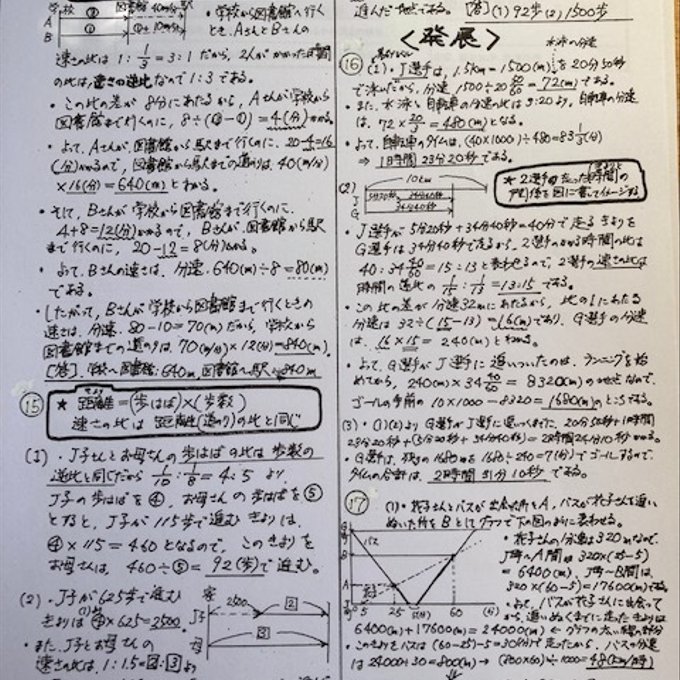 学校 図書館
A
B
・学校から図書館へ行く
とき、AさんとBさんの
速さの比は 1:1/3=3:1だから、2人がかかった時間
の比は、速さの逆比なので1:3である。
・この比の差が 8分にあたるから、Aさんが学校から
図書館まで行くのに、8÷(③-①)=4(分)かかる。
・よって、Aさんが、図書館から駅まで行くのに、20-4=16
(分)かかるので、図書館から駅までの道のりは、40(m/分)
×16(分)=640(m)とわかる。
・そして、Bさんが学校から図書館まで行くのに、
4+8=12(分)かかるので、Bさんが、図書館から駅
まで行くのに、20-12=8(分)かかる。
・よって、Bさんの速さは、分速、640(m)÷8=80(m)
である。
・したがって、Bさんが学校から図書館まで行くときの
速さは、分速、80-10=70(m)だから、学校から
図書館までの道のりは、70(m/分)×12(分)=840(m)。
[答]、学校〜図書館:
⑮ ★ 距離=(歩はば)×(歩数)
速さの比は 距離(道のり)の比と同じ
(1)・J子さんとお母さんの歩はばの比は歩数の
逆比と同じだから 1/10:1/8=4:5より、
J子の歩はばを④、お母さんの歩はばを⑤
とすると、J子が115歩で進むきょりは、
④×115=460となるので、このきょりを
お母さんは、460÷⑤=92(歩)で進む。
(2)・J子が625歩で進む
きょりは④×625=2500。
・また、J子とお母さんの
速さの比は、1:1.5=2:3より
J子 2500 2
母 3
進んだ地点である。[答](1)92歩(2)1500歩
<発展>
水泳の分速
⑯(1)・J選手は、1.5km=1500(m)を20分50秒
で泳いだから、分速、1500÷20 50/60=72(m)である。
・また、水泳と自転車の分速の比は3:20より、自転車の分速
は、72×20/3=480(m)となる。
・よって、自転車のタイムは、(40×1000)÷480=83 1/3(分)
⇒1時間23分20秒である。
(2)
10km
5分20秒 34分40秒
J
G 34分40秒
★2選手の走った時間の
関係を図に書いてイメージする
・J選手が5分20秒+34分40秒=40分で走るきょりを
G選手は34分40秒で走るから、2選手のかかる時間の比は
40:34 40/60=15:13と表わせるので、2選手の速さの比は
時間の逆比の 1/15:1/13=13:15である。
・この比の差が分速32mにあたるから、比の1にあたる
分速は 32÷(15-13)=16(m)であり、G選手の分速
は、16×15=240(m)とわかる。
・よって、G選手がJ選手に追いついたのは、ランニングを始
めてから、240(m)×34 40/60=8320(m)のかせなので、
ゴールの手前の10×1000-8320=1680(m)のところである。
(3)・(1)(2)よりG選手がJ選手に追いつくまでに、20分50秒+1時間
23分20秒+(5分20秒+34分40秒)=2時間24分10秒かかる。
・G選手は、残りの1680mを1680÷240=7(分)でゴールするので、
タイムの合計は、2時間31分10秒である。
⑰(1)・花子さんとバスが出会った所をA、バスが花子さんを追い
ぬいた所をBとしてグラフで下の図のように表わせる。
バス
B
A
花子
5 25 60 (分)
・花子さんの分速は320mなので、
J町〜A間は320×(25-5)
=6400(m)、J町〜B間は、
320×(60-5)=17600(m)である。
・よって、バスが花子さんに出会って
から、追いぬくまでに走ったきょりは
6400(m)+17600(m)=24000(m) ←グラフの太い線の部分
・このきょりをバスは(60-25)-5=30(分)で走ったから、バスの分速
は24000÷30=800(m)→(800×60)÷1000=48(km/時)